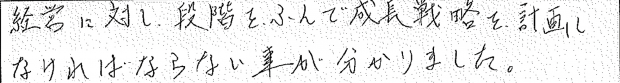 経営に対し、段階をふんで成長戦略を計画し
なければならない事が分かりました。